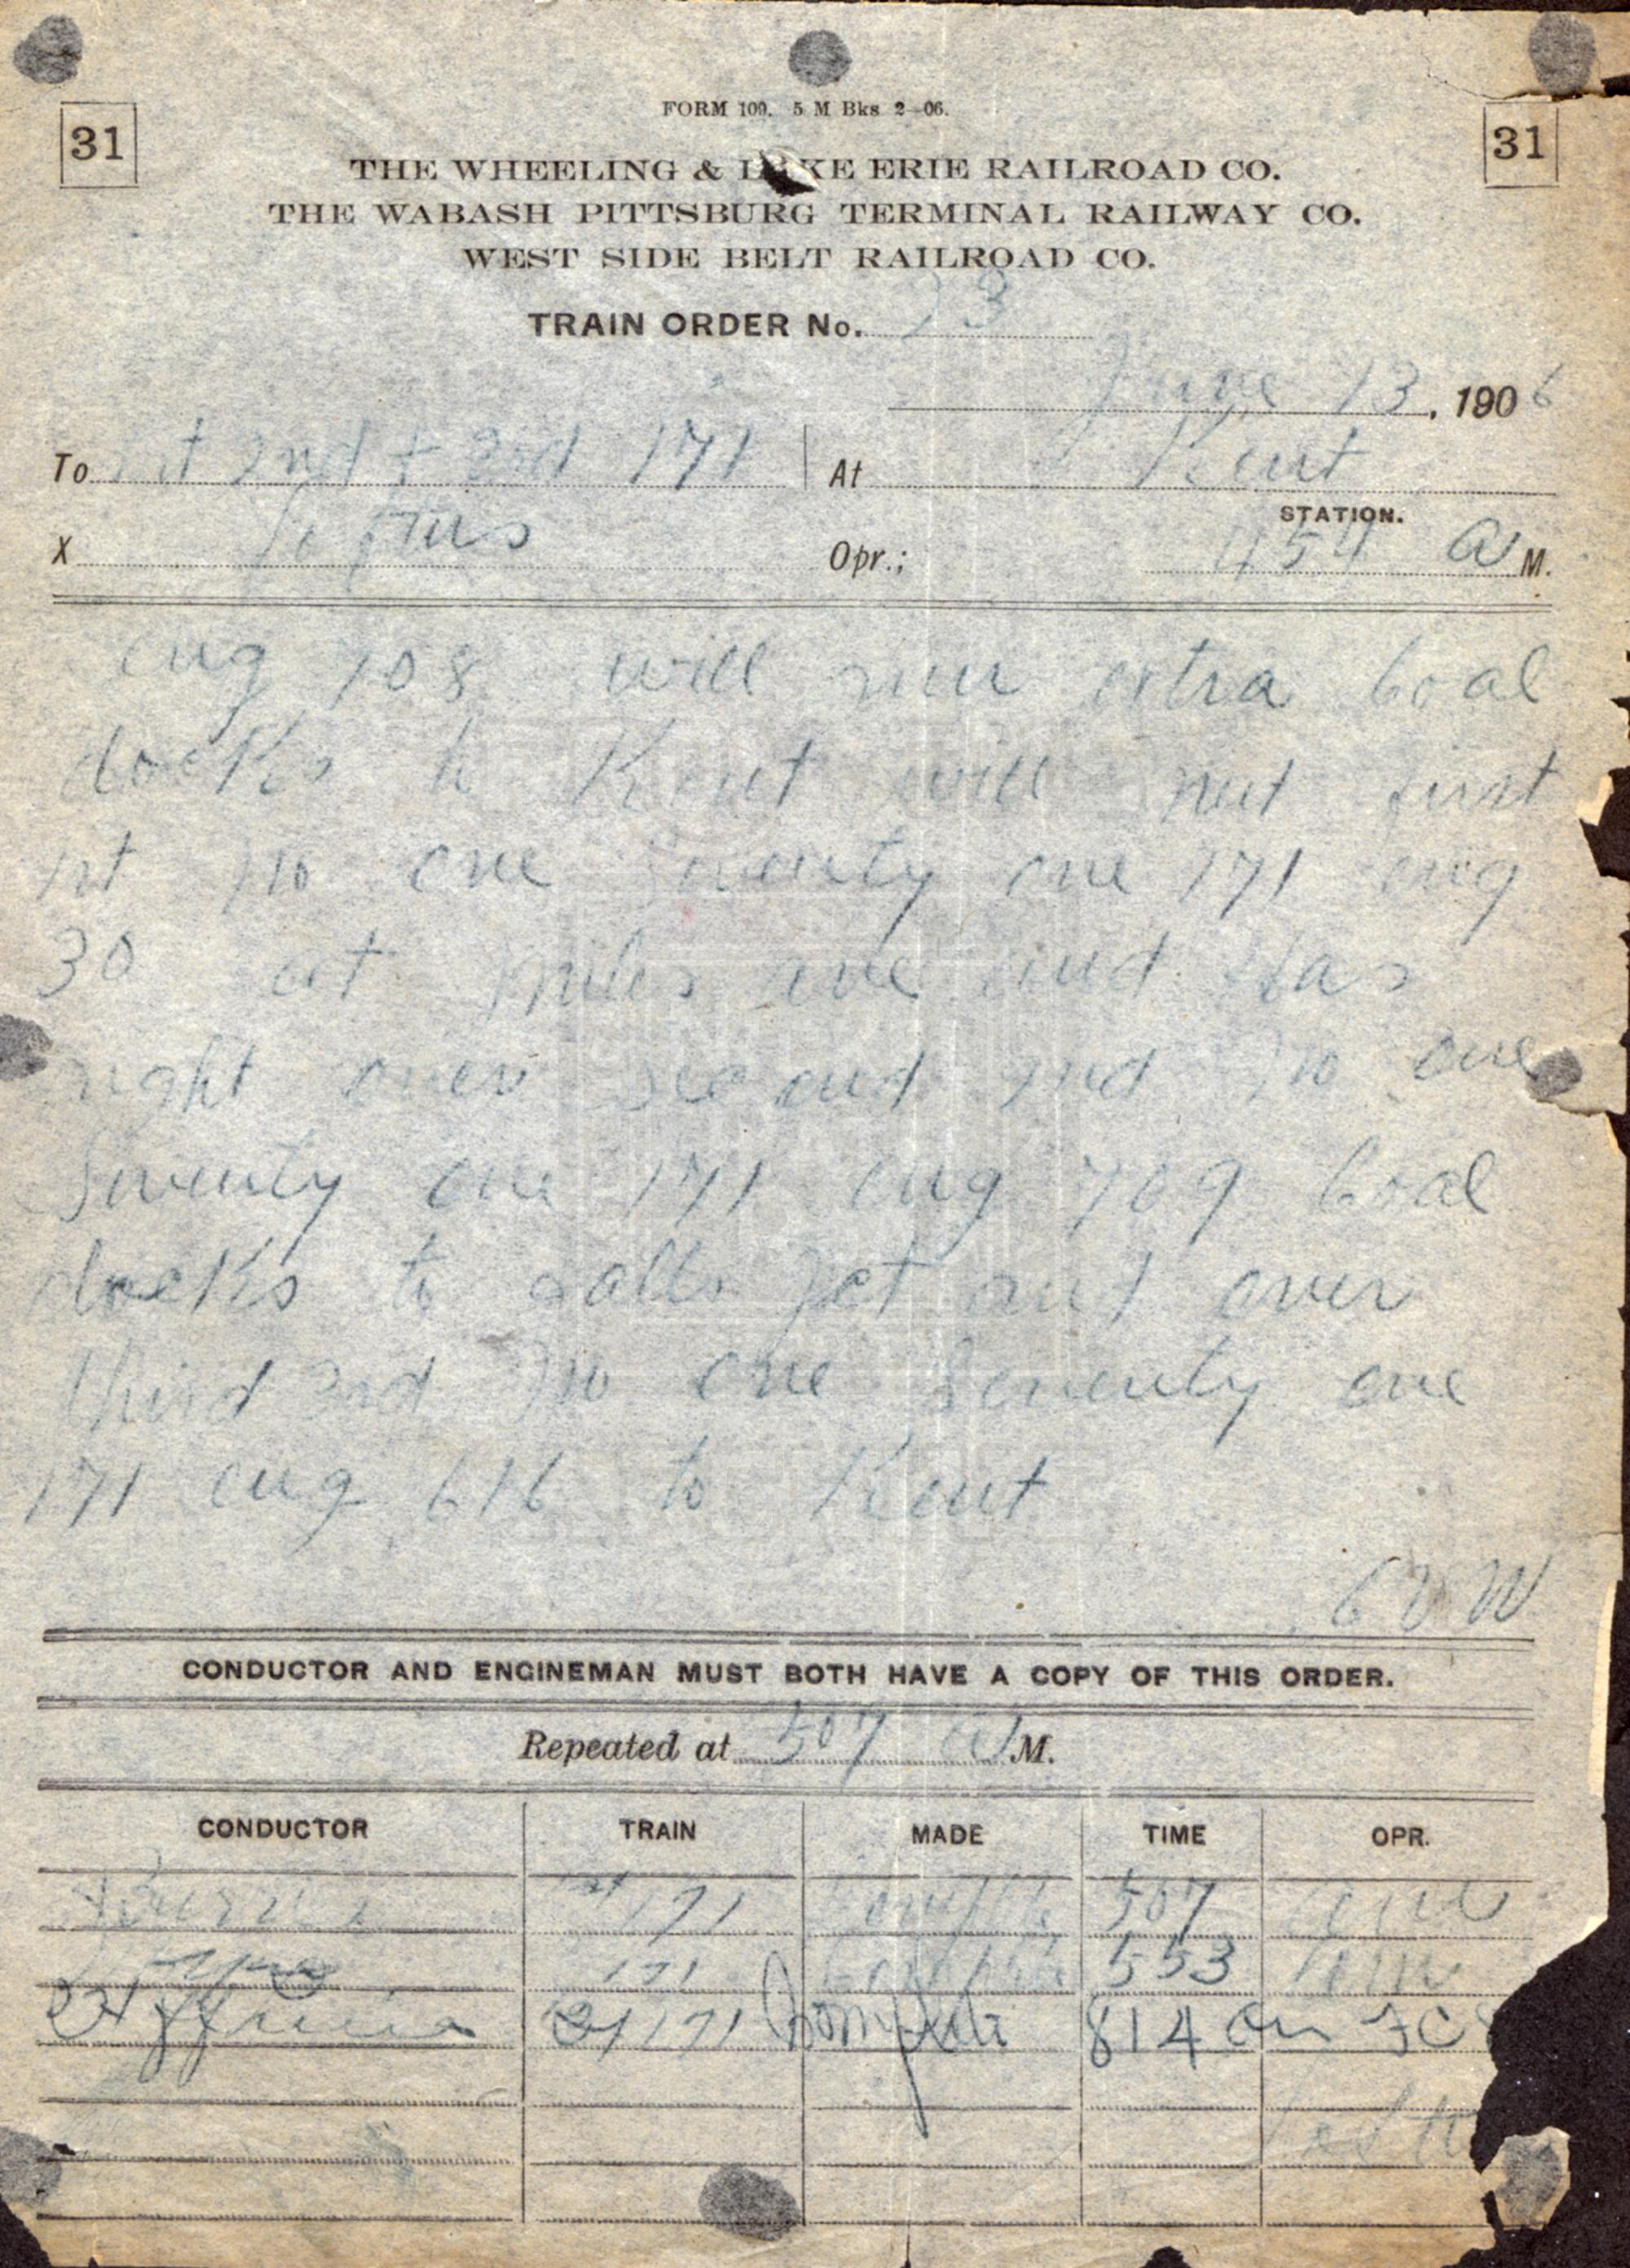 FORM 109. 5 M Bks 2-06.
31
31
THE WHEELING & LAKE ERIE RAILROAD CO.
THE WABASH PITTSBURG TERMINAL RAILWAY CO.
WEST SIDE BELT RAILROAD CO.
TRAIN ORDER No. 73
June 13, 1906
To 1st 2nd + 3rd 171 At Kent
STATION.
X Opr.; 454 a M.
eng 708 will run extra Coal
docks to Kent will meet first
1st No one Seventy one 171 eng
30 at Miles ave and has
right over second 2nd No one
Seventy one 171 eng 709 Coal
docks to Falls Jct and over
third 3rd No one Seventy one
171 eng 616 to Kent
CORD
CONDUCTOR AND ENGINEMAN MUST BOTH HAVE A COPY OF THIS ORDER.
Repeated at 507 a M.
CONDUCTOR TRAIN MADE TIME OPR.
171 Complete 507
171 Complete 553
171 Complete 814